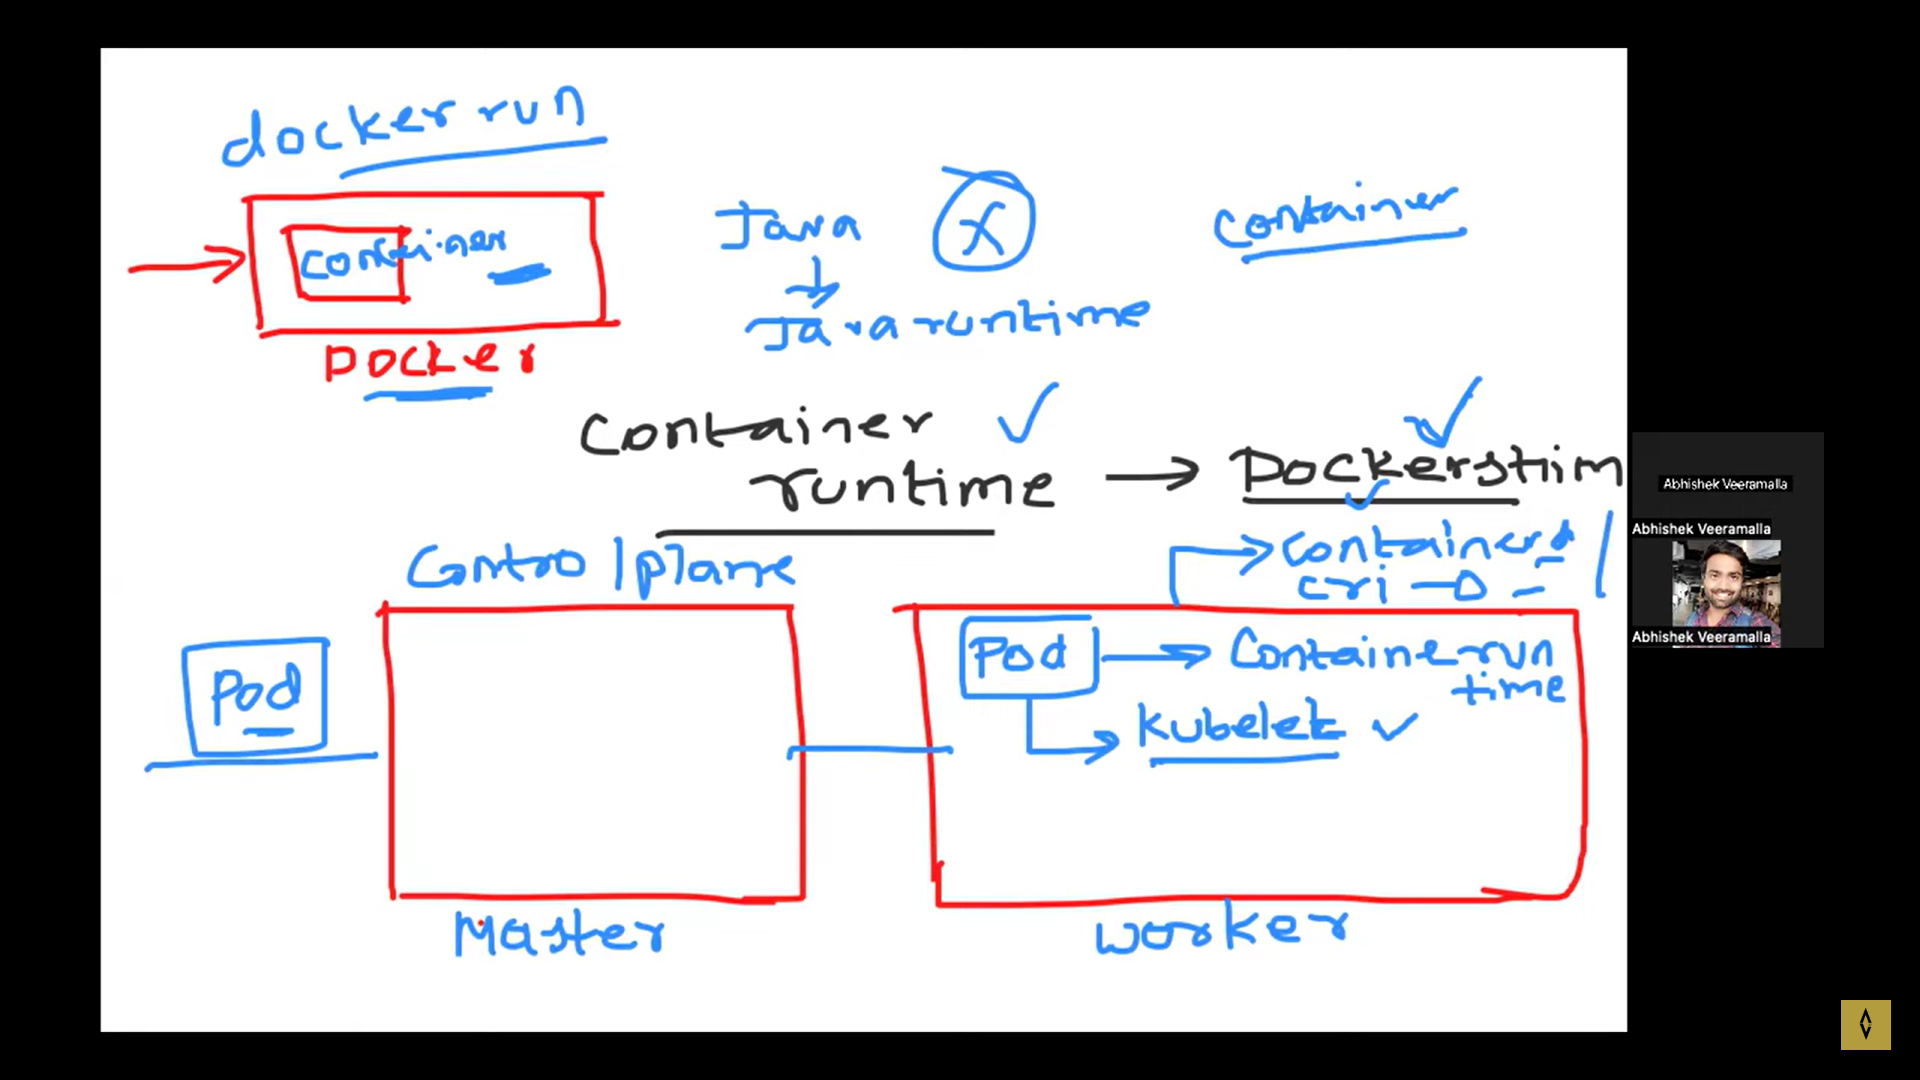 docker run
container
Docker
Java
X
Java runtime
container
Container
runtime
Dockershim
containerd
cri-O
Control plane
Pod
Pod
Container run
time
Kubelet
Master
Worker
Abhishek Veeramalla
Abhishek Veeramalla
Abhishek Veeramalla